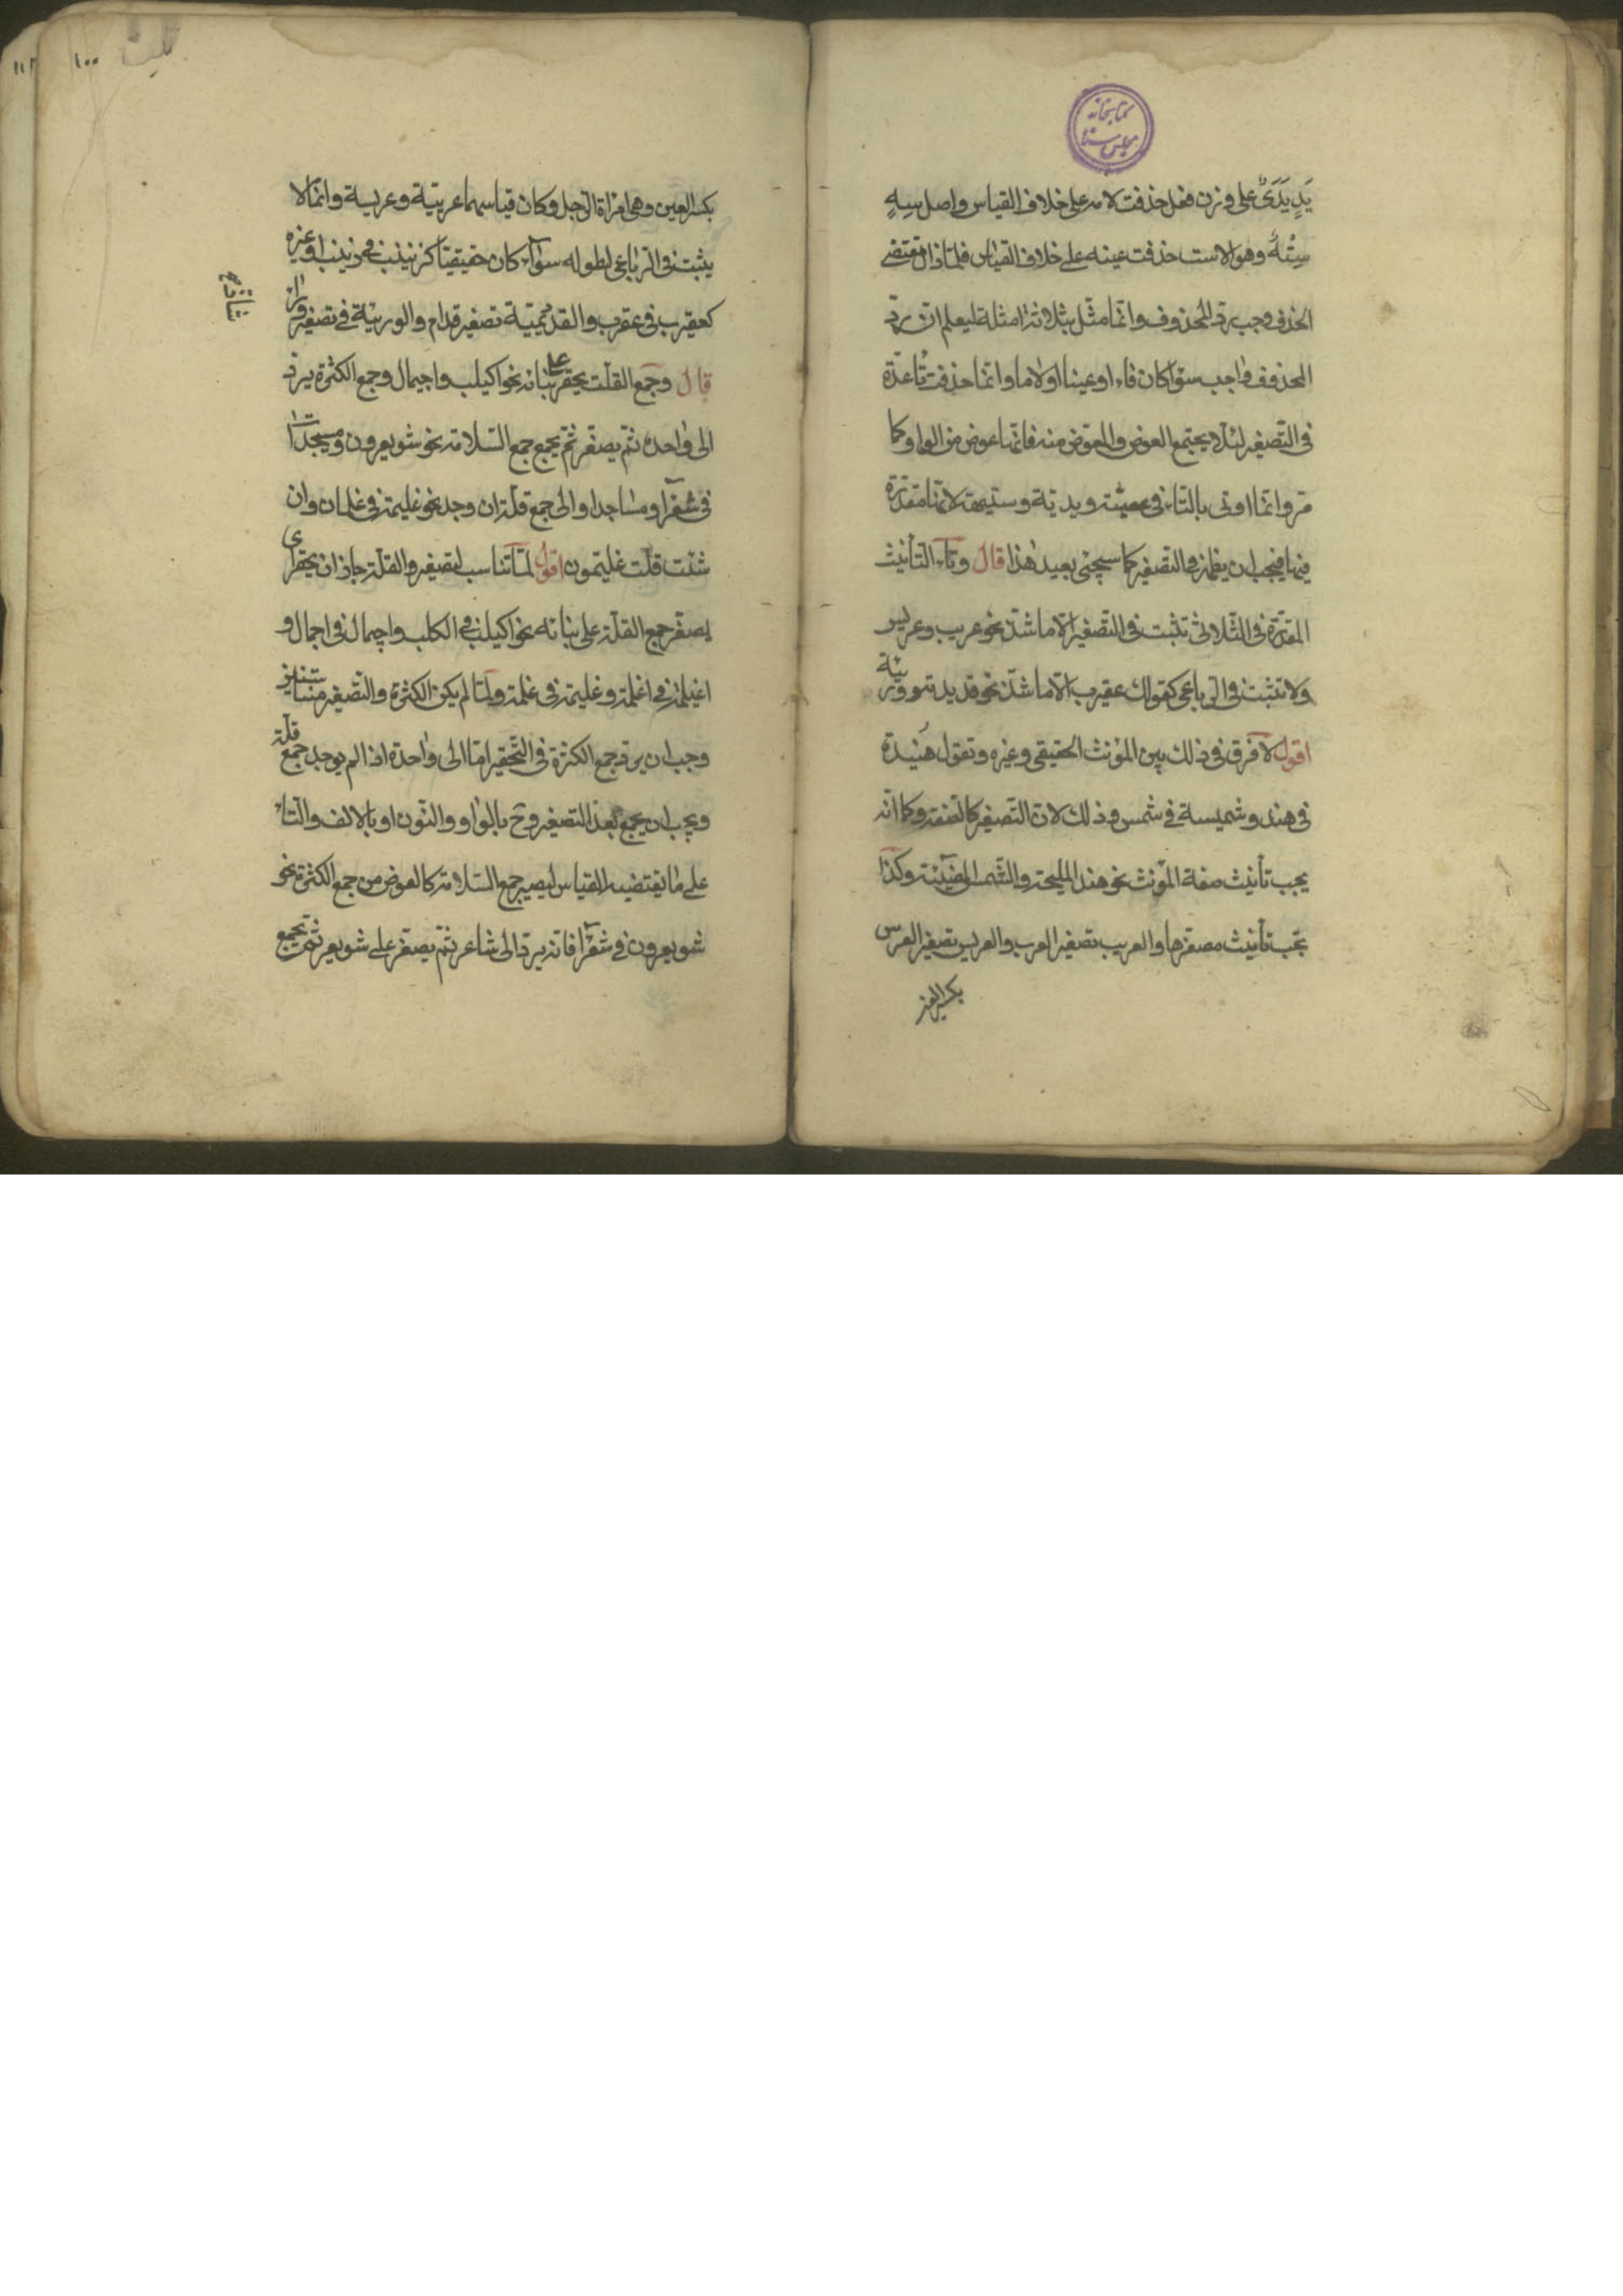 كتابخانه
مجلس سنا
يَدٍ يَدَيٌ على وزن فعل حذفت لامه على خلاف القياس واصل سِهٍ
سِتْهٌ وهو الاست حذفت عينه على خلاف القياس فلما زال مقتضى
الحذف وجب رد المحذوف وانما مثل بثلاثة امثلة ليعلم ان رد
المحذوف واجب سوآ كان فاء او عينا او لاما وانما حذفت تاء عدة
فى التصغير لئلا يجتمع العوض والمعوض منه فانها عوض من الواو كما
مر وانما اوتى بالتاء فى يدية وستيهة لانها مقدرة
فيها فيجب ان يظهر فى التصغير كما سيجئ بعيد هذا قال وتاء التأنيث
المقدرة فى الثلاثى تثبت فى التصغير الا ما شذ نحو عريب وعريس
ولا تثبت فى الرباعى كقولك عقيرب الا ما شذ نحو قديديمة ووريئة
اقول لا فرق فى ذلك بين المؤنث الحقيقى وغيره وتقول هنيدة
فى هند وشميسة فى شمس وذلك لان التصغير كالصفة وكما انه
يجب تأنيث صفة المؤنث نحو هند المليحة والشمس المضيئة وكذا
يجب تأنيث مصغرها والعريب تصغير العرب والعريس تصغير العرس
بكسر العين
١٠٠
١١٢
بكسر العين وهى امرأة الرجل وكان قياسهما عريبة وعريسة وانما لا
يثبت فى الرباعى لطوله سوآء كان حقيقيا كزيينب فى زينب او غيره
كعقيرب فى عقرب والقديديمة تصغير قدام والوريئة فى تصغير ورآء
قال وجمع القلة يحقر على بنائه نحو اكيلب واجيمال وجمع الكثرة يرد
الى واحده ثم يصغر ثم يجمع جمع السلامة نحو شويعرون ومسيجدات
فى شعرآ ومساجد او الى جمع قلة ان وجد نحو غليمة فى غلمان وان
شئت قلت غليمون اقول لما تناسب لتصغير والقلة جاز ان يحقر اى
يصغر جمع القلة على بنائه نحو اكيلب فى اكلب واجيمال فى اجمال و
اغيلمة فى اغلمة وغليمة فى غلمة ولما لم يكن الكثرة والتصغير متناسبتين
وجب ان يرد جمع الكثرة فى التحقير اما الى واحده اذا لم يوجد جمع قلة
ويجب ان يجمع بعد التصغير وح بالواو والنون او بالالف والتاء
على ما يقتضيه القياس ليصير جمع السلامة كالعوض من جمع الكثرة نحو
شويعرون فى شعرآ فانه يرد الى شاعر ثم يصغر على شويعر ثم يجمع